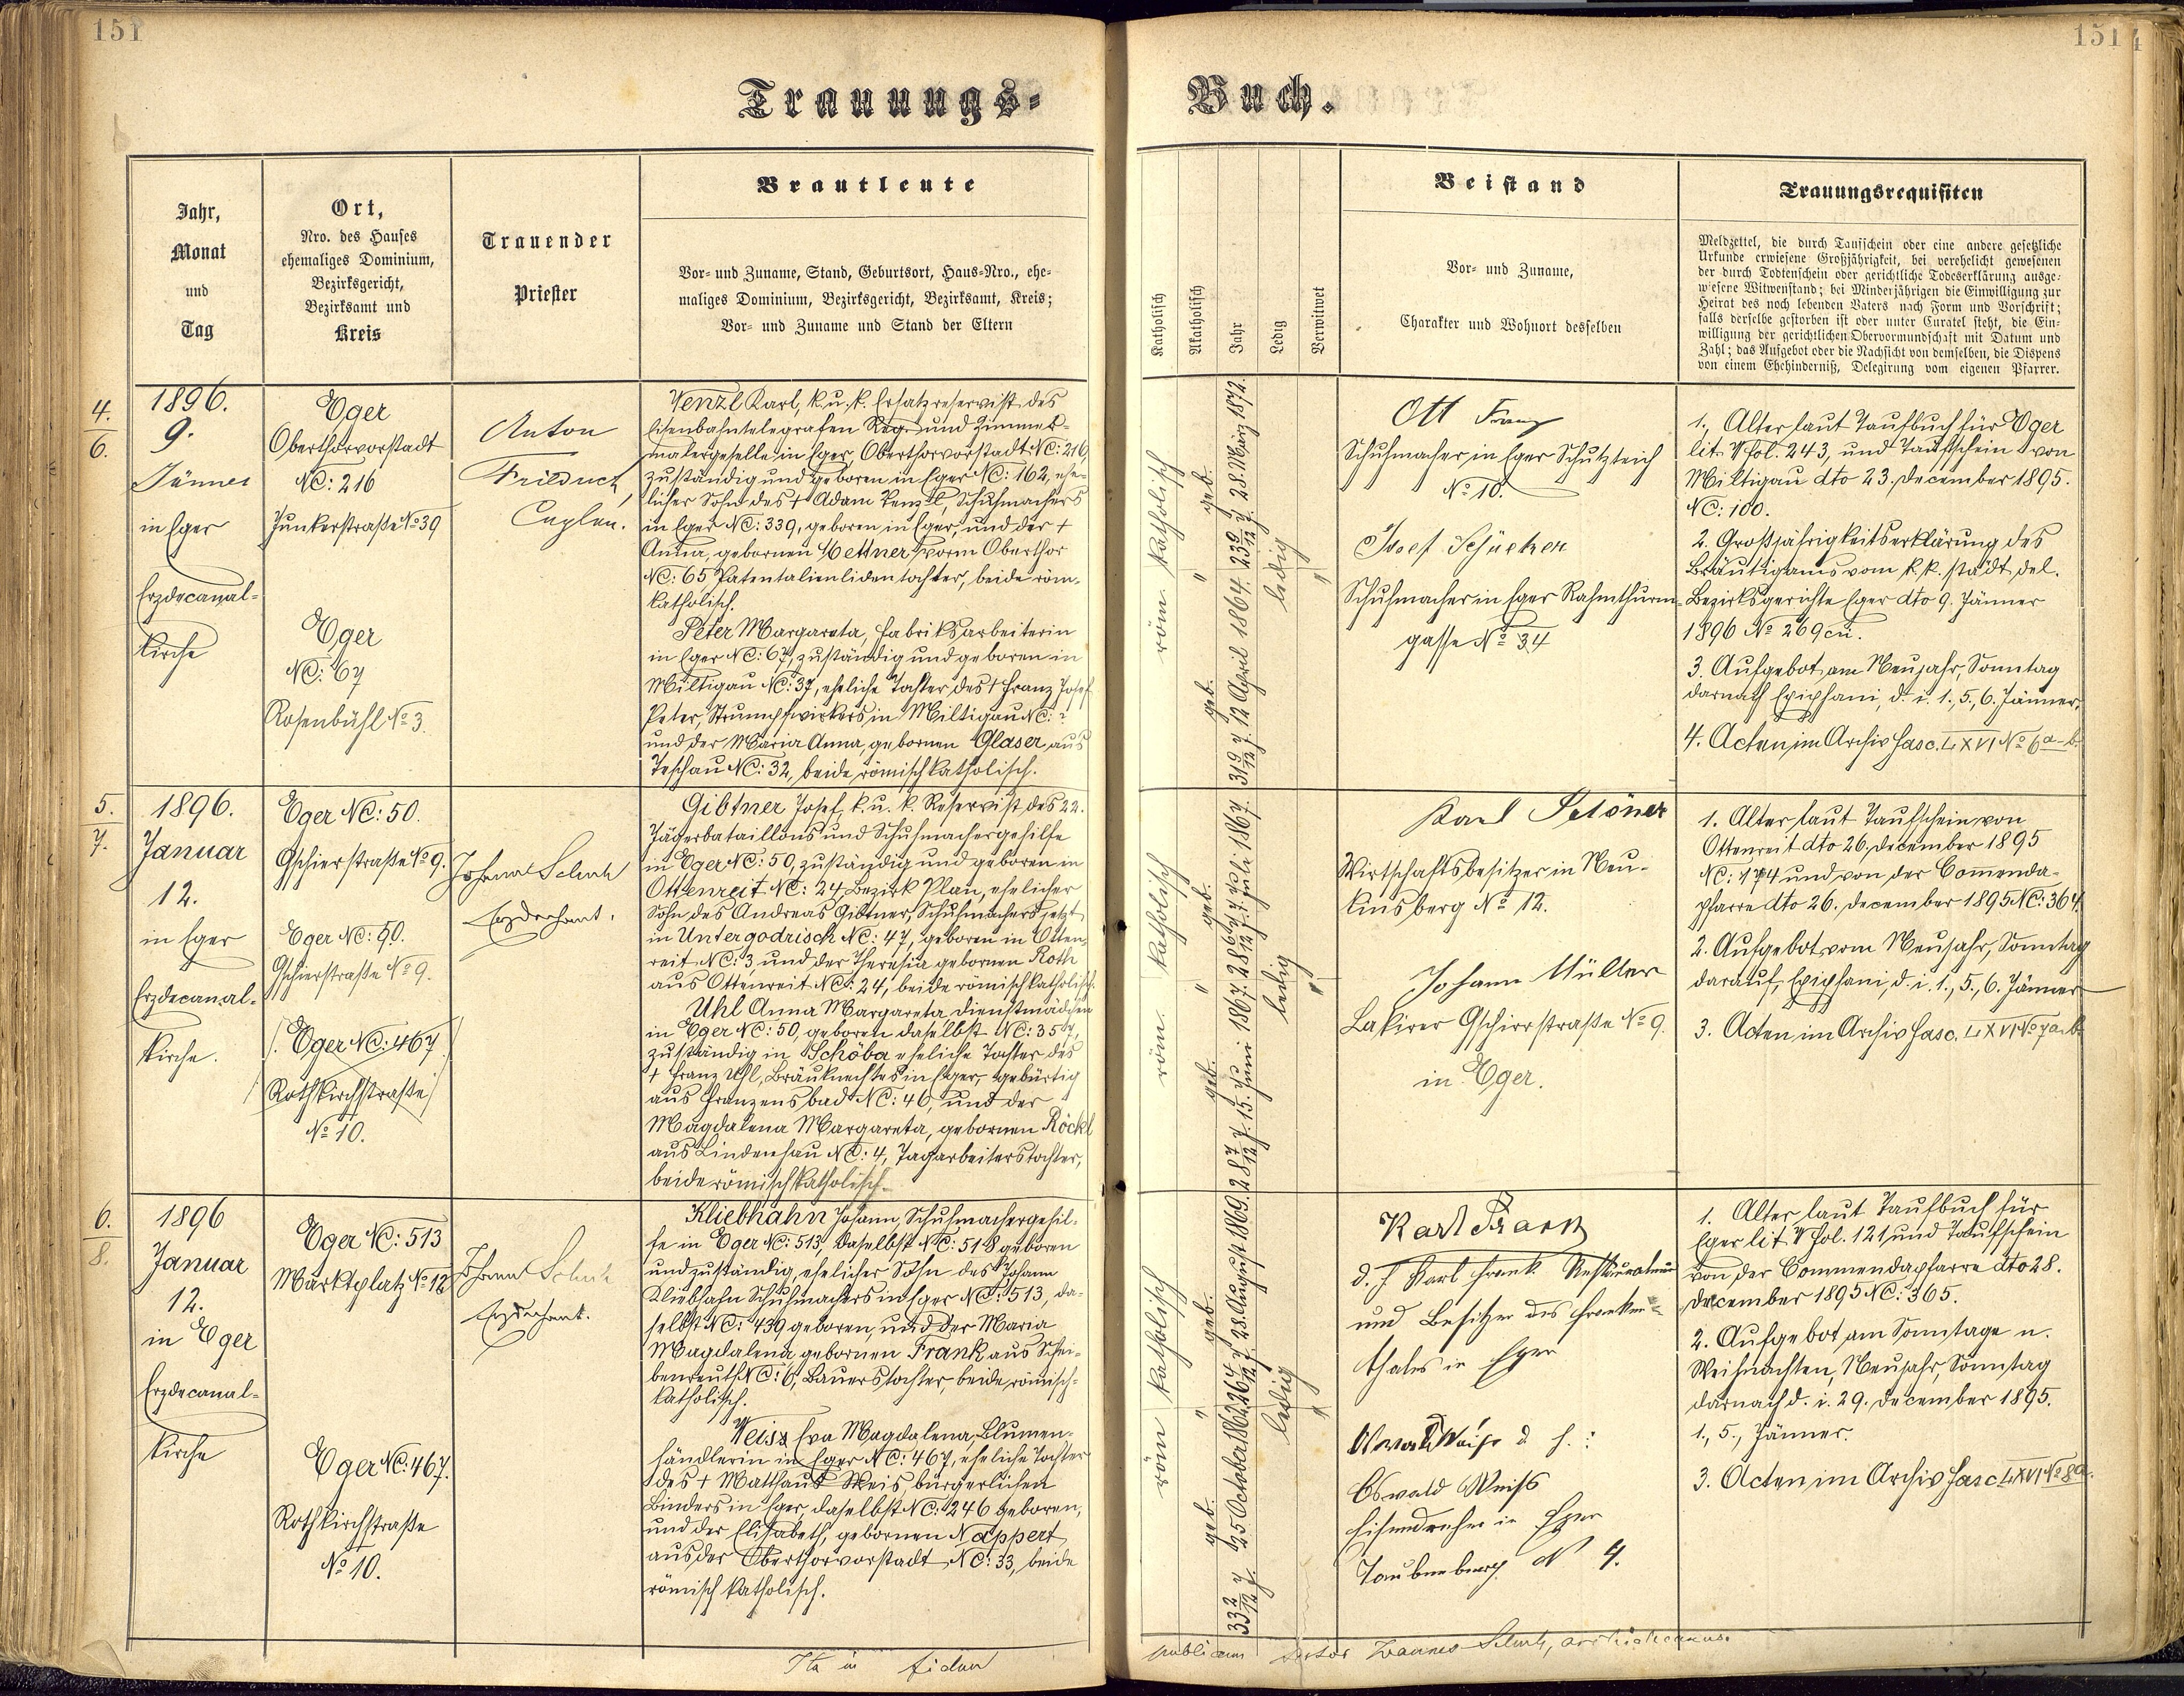 151
151
Trauungs-
Buch.
Jahr,
Monat
und
Tag
Ort,
Nro. des Hauses
ehemaliges Dominium,
Bezirksgericht,
Bezirksamt und
Kreis
Trauender
Priester
Brautleute
Vor- und Zuname, Stand, Geburtsort, Haus-Nro., ehe-
maliges Dominium, Bezirksgericht, Bezirksamt, Kreis;
Vor- und Zuname und Stand der Eltern
Katholisch
Akatholisch
Jahr
Ledig
Verwitwet
Beistand
Vor- und Zuname,
Charakter und Wohnort desselben
Trauungsrequisiten
Meldzettel, die durch Taufschein oder eine andere gesetzliche
Urkunde erwiesene Großjährigkeit, bei verehelicht gewesenen
der durch Todtenschein oder gerichtliche Todeserklärung ausge-
wiesene Witwenstand; bei Minderjährigen die Einwilligung zur
Heirat des noch lebenden Vaters nach Form und Vorschrift;
falls derselbe gestorben ist oder unter Curatel steht, die Ein-
willigung der gerichtlichen Obervormundschaft mit Datum und
Zahl; das Aufgebot oder die Nachsicht von demselben, die Dispens
von einem Ehehinderniß, Delegirung vom eigenen Pfarrer.
4.
6.
1896.
9.
Jänner
in Eger
Erzdecanal-
kirche
Eger
Oberthorvorstadt
NC: 216
Junkerstraße No 39
Eger
NC: 67
Rosenbühl No 3.
Anton
Friedrich,
Caplan.
Venzl Karl, k. u. k. Ersatzreservist des
Eisenbahntelegrafen Reg. und Zimmer-
malergeselle in Eger Oberthorvorstadt NC: 216
zuständig und geboren in Eger NC: 162, ehe-
licher Sohn des + Adam Venzl, Schuhmachers
in Eger NC: 339, geboren in Eger, und der +
Anna, gebornen Mettner, vorm Oberthor
NC: 65 Patentalinvalidentochter, beide röm.
katholisch.
Peter Margareta, Fabriksarbeiterin
in Eger NC: 67, zuständig und geboren in
Miltigau NC: 37, eheliche Tochter des + Franz Josef
Peter, Strumpfwirkers in Miltigau NC: ?
und der Maria Anna, gebornen Glaser aus
Teschau NC: 32, beide römisch katholisch.
röm. katholisch
"
31 9/12 J. geb. 12 April 1864.
23 9/12 J. geb. 28. März 1872.
ledig
"
Ott Franz
Schuhmacher in Eger Schutzteich
No 10.
Josef Schücker
Schuhmacher in Eger Rahmthurm-
gasse No 34
1., Alter laut Taufbuch für Eger
lit. V fol. 243, und Taufschein von
Miltigau dto 23. December 1895.
NC: 100.
2. Großjährigkeitserklärung des
Bräutigams vom k. k. städt. del.
Bezirksgerichte Eger dto 9. Jänner
1896 No 269
3. Aufgebot am Neujahr, Sonntag
darnach Epiphani, d. i. 1., 5., 6. Jänner.
4. Acten im Archiv Fasc. LXVI No 6a-b.
5.
7.
1896.
Januar
12.
in Eger
Erzdecanal-
kirche.
Eger NC: 50.
Gschierstraße No 9.
Eger NC: 50.
Gschierstraße No 9.
(Eger NC: 467)
(Rothkirchstraße)
No 10.
Johann Schuh
Erzdechant.
Gibtner Josef, k. u. k. Reservist des 22.
Jägerbataillons und Schuhmachergehilfe
in Eger NC: 50, zuständig und geboren in
Ottenreit NC: 24 Bezirk Plan, ehelicher
Sohn des Andreas Gibtner, Schuhmachers jetzt
in Untergodrisch NC: 47, geboren in Otten-
reit NC: 3 und der Theresia gebornen Roth
aus Ottenreit NC: 24, beide römisch katholisch.
Uhl Anna Margareta Dienstmädchen
in Eger NC: 50, geboren daselbst NC: 357,
zuständig in Schöba eheliche Tochter des
+ Franz Uhl, Bräuknechtes in Eger, gebürtig
aus Franzensbad NC: 46, und der
Magdalena Margareta, gebornen Röckl
aus Lindenhau NC: 4, Tagarbeiterstochter,
beide römisch katholisch.
röm. katholisch
"
28 7/12 J. geb. 15. Juni 1867.
28 6/12 J. geb. 7. Juli 1867.
ledig
"
Karl
Wirtschaftsbesitzer in Neu-
kinsberg No 12.
Johann Müller
Lakirer Gschierstraße No 9.
in Eger.
1. Alter laut Taufschein von
Ottenreit dto 26. December 1895
NC: 174 und von der Commenda-
pfarre dto 26. December 1895 NC: 364.
2. Aufgebot vom Neujahr, Sonntag
darauf, Epiphani, d. i. 1., 5., 6. Jänner
3. Acten im Archiv Fasc. LXVI No 7a-b.
6.
8.
1896
Januar
12.
in Eger
Erzdecanal-
kirche
Eger NC: 513
Marktplatz No 12
Eger NC: 467.
Rothkirchstraße
No 10.
Johann Schuh
Erzdechant.
Kliebhahn Johann, Schuhmachergehil-
fe in Eger NC: 513, daselbst NC: 518 geboren
und zuständig, ehelicher Sohn des Johann
Kliebhahn Schuhmachers in Eger NC: 513, da-
selbst NC: 439 geboren, und der Maria
Magdalena gebornen Frank aus Schei-
benreuth NC: 6, Bauerstochter, beide römisch-
katholisch.
Weiss Eva Magdalena, Blumen-
händlerin in Eger NC: 467, eheliche Tochter
des + Matthaus Weis, bürgerlichen
Binders in Eger, daselbst NC: 246 geboren,
und der Elisabeth, gebornen Nappert,
aus der Oberthorvorstadt NC: 33, beide
römisch katholisch.
röm katholisch
"
33 2/12 J. geb. 25 October 1862
geb. 28. August 1869.
ledig
"
Karl Frank
d. h Karl Frank Restaurateur
und Besitzer des Franken-
thales in Eger
Oswald Weiss d. h. :
Oswald Weiss
Eisendreher in Eger
N 4.
1. Alter laut Taufbuch für
Eger lit. V fol. 121 und Taufschein
von der Commendapfarre dto 28.
December 1895 NC: 365.
2. Aufgebot am Sonntage n.
Weihnachten, Neujahr, Sonntag
darnach d. i. 29. December 1895.
1., 5., Jänner.
3. Acten im Archiv Fasc. LXVI No 8a.
Ita in fidem
publicam testor Joannes Schuh, archidecanus.